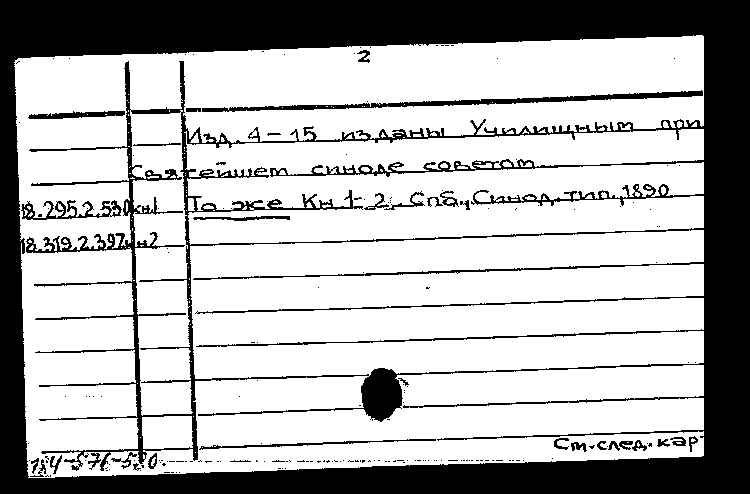 2
Изд. 4-15 изданы Училищным при
Святейшем синоде советом
18.295.2.530 кн1 То же Кн 1-2. Спб., Синод. тип., 1890
18.319.2.397 кн2
См. след. кар
184-576-580.